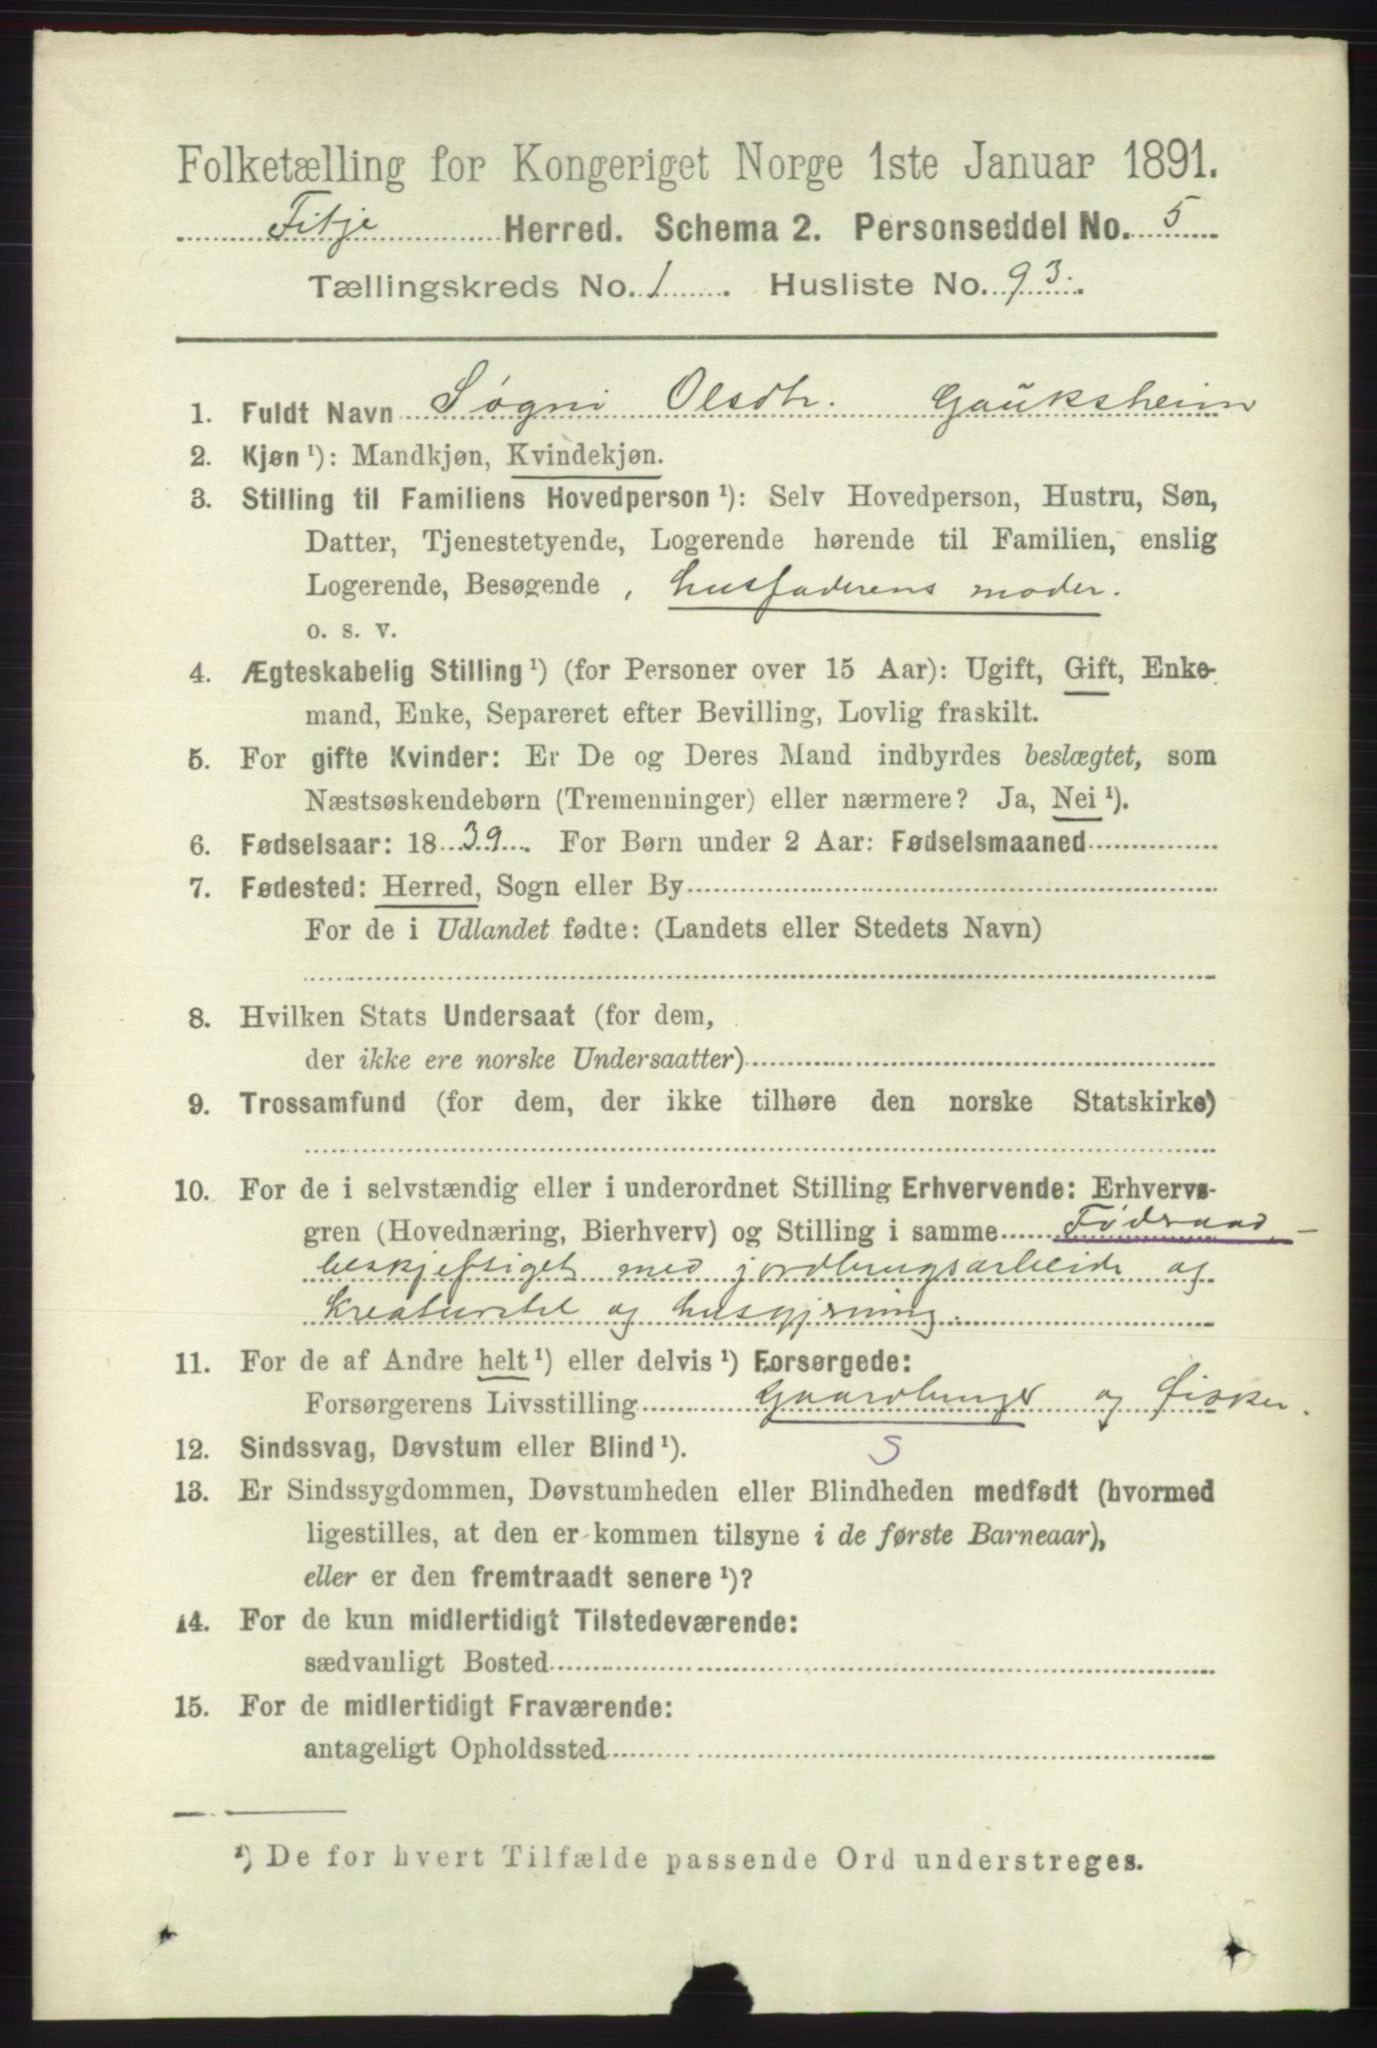 Folketælling for Kongeriget Norge 1ste Januar 1891.
Fitje Herred. Schema 2. Personseddel No. 5
Tællingskreds No. 1. Husliste No. 93.
1. Fuldt Navn Søgni Olsdtr. Gauksheim
2. Kjøn ¹): Mandkjøn, Kvindekjøn.
3. Stilling til Familiens Hovedperson ¹): Selv Hovedperson, Hustru, Søn,
Datter, Tjenestetyende, Logerende hørende til Familien, enslig
Logerende, Besøgende, husfaderens moder.
o. s. v.
4. Ægteskabelig Stilling ¹) (for Personer over 15 Aar): Ugift, Gift, Enke-
mand, Enke, Separeret efter Bevilling, Lovlig fraskilt.
5. For gifte Kvinder: Er De og Deres Mand indbyrdes beslægtet, som
Næstsøskendebørn (Tremenninger) eller nærmere? Ja, Nei ¹).
6. Fødselsaar: 1839. For Børn under 2 Aar: Fødselsmaaned
7. Fødested: Herred, Sogn eller By
For de i Udlandet fødte: (Landets eller Stedets Navn)
8. Hvilken Stats Undersaat (for dem,
der ikke ere norske Undersaatter)
9. Trossamfund (for dem, der ikke tilhøre den norske Statskirke)
10. For de i selvstændig eller i underordnet Stilling Erhvervende: Erhvervs-
gren (Hovednæring, Bierhverv) og Stilling i samme Fødraad, –
beskjeftiget med jordbrugsarbeide og
kreaturstel og husgjerning.
11. For de af Andre helt ¹) eller delvis ¹) Forsørgede:
Forsørgerens Livsstilling Gaardbruger og fisker.
12. Sindssvag, Døvstum eller Blind ¹). S
13. Er Sindssygdommen, Døvstumheden eller Blindheden medfødt (hvormed
ligestilles, at den er kommen tilsyne i de første Barneaar),
eller er den fremtraadt senere ¹)?
14. For de kun midlertidigt Tilstedeværende:
sædvanligt Bosted
15. For de midlertidigt Fraværende:
antageligt Opholdssted
¹) De for hvert Tilfælde passende Ord understreges.